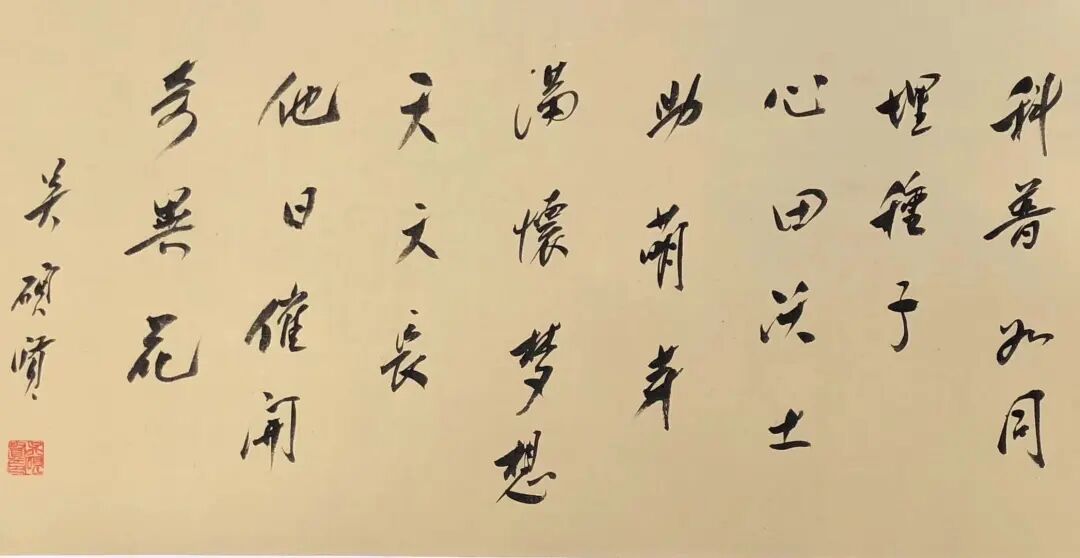 科普如同
埋種子
心田沃土
助萌芽
满懷梦想
天天長
他日催開
奇異花
吴碩贤